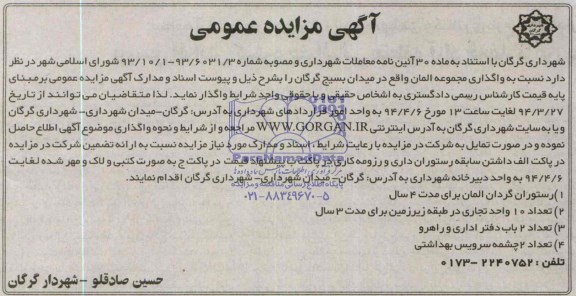 آگهی مزایده عمومی
شهرداری گرگان با استناد به ماده ۳۰ آئین نامه معاملات شهرداری و مصوبه شماره ۹۳/۶۰۳۱/۳-۹۳/۱۰/۱ شورای اسلامی شهر در نظر
دارد نسبت به واگذاری مجموعه المان واقع در میدان بسیج گرگان را بشرح ذیل و پیوست اسناد و مدارک آگهی مزایده عمومی بر مبنای
پایه قیمت کارشناس رسمی دادگستری به اشخاص حقیقی و یا حقوقی واجد شرایط واگذار نماید. لذا متقاضیان می توانند از تاریخ
۹۴/۳/۲۷ لغایت ساعت ۱۳ مورخ ۹۴/۴/۶ به واحد امور قراردادهای شهرداری به آدرس: گرگان-میدان شهرداری- شهرداری گرگان
و یا به سایت شهرداری گرگان به آدرس اینترنتی WWW.GORGAN.IR مراجعه و از شرایط و نحوه واگذاری موضوع آگهی اطلاع حاصل
نموده و در صورت تمایل به شرکت در مزایده با رعایت شرایط، اسناد و مدارک مورد نیاز مزایده نسبت به ارائه تضمین شرکت در مزایده
در پاکت الف داشتن سابقه رستوران داری و رزومه کاری در پاکت ب پیشنهاد قیمت در پاکت ج به صورت کتبی و لاک و مهر شده لغایت
۹۴/۴/۶ به واحد دبیرخانه شهرداری به آدرس: گرگان- میدان شهرداری- شهرداری گرگان اقدام نمایند.
۱) رستوران گردان المان برای مدت ۴ سال
پایگاه اطلاع رسانی مناقصه و مزایده
۲) تعداد ۱۰ واحد تجاری در طبقه زیرزمین برای مدت ۳ سال
۰۲۱-۸۸۳۴۹۶۷۰-۵
۳) تعداد ۲ باب دفتر اداری و راهرو
۴) تعداد ۲ چشمه سرویس بهداشتی
تلفن: ۲۲۴۰۷۵۲-۰۱۷۳
حسین صادقلو - شهردار گرگان